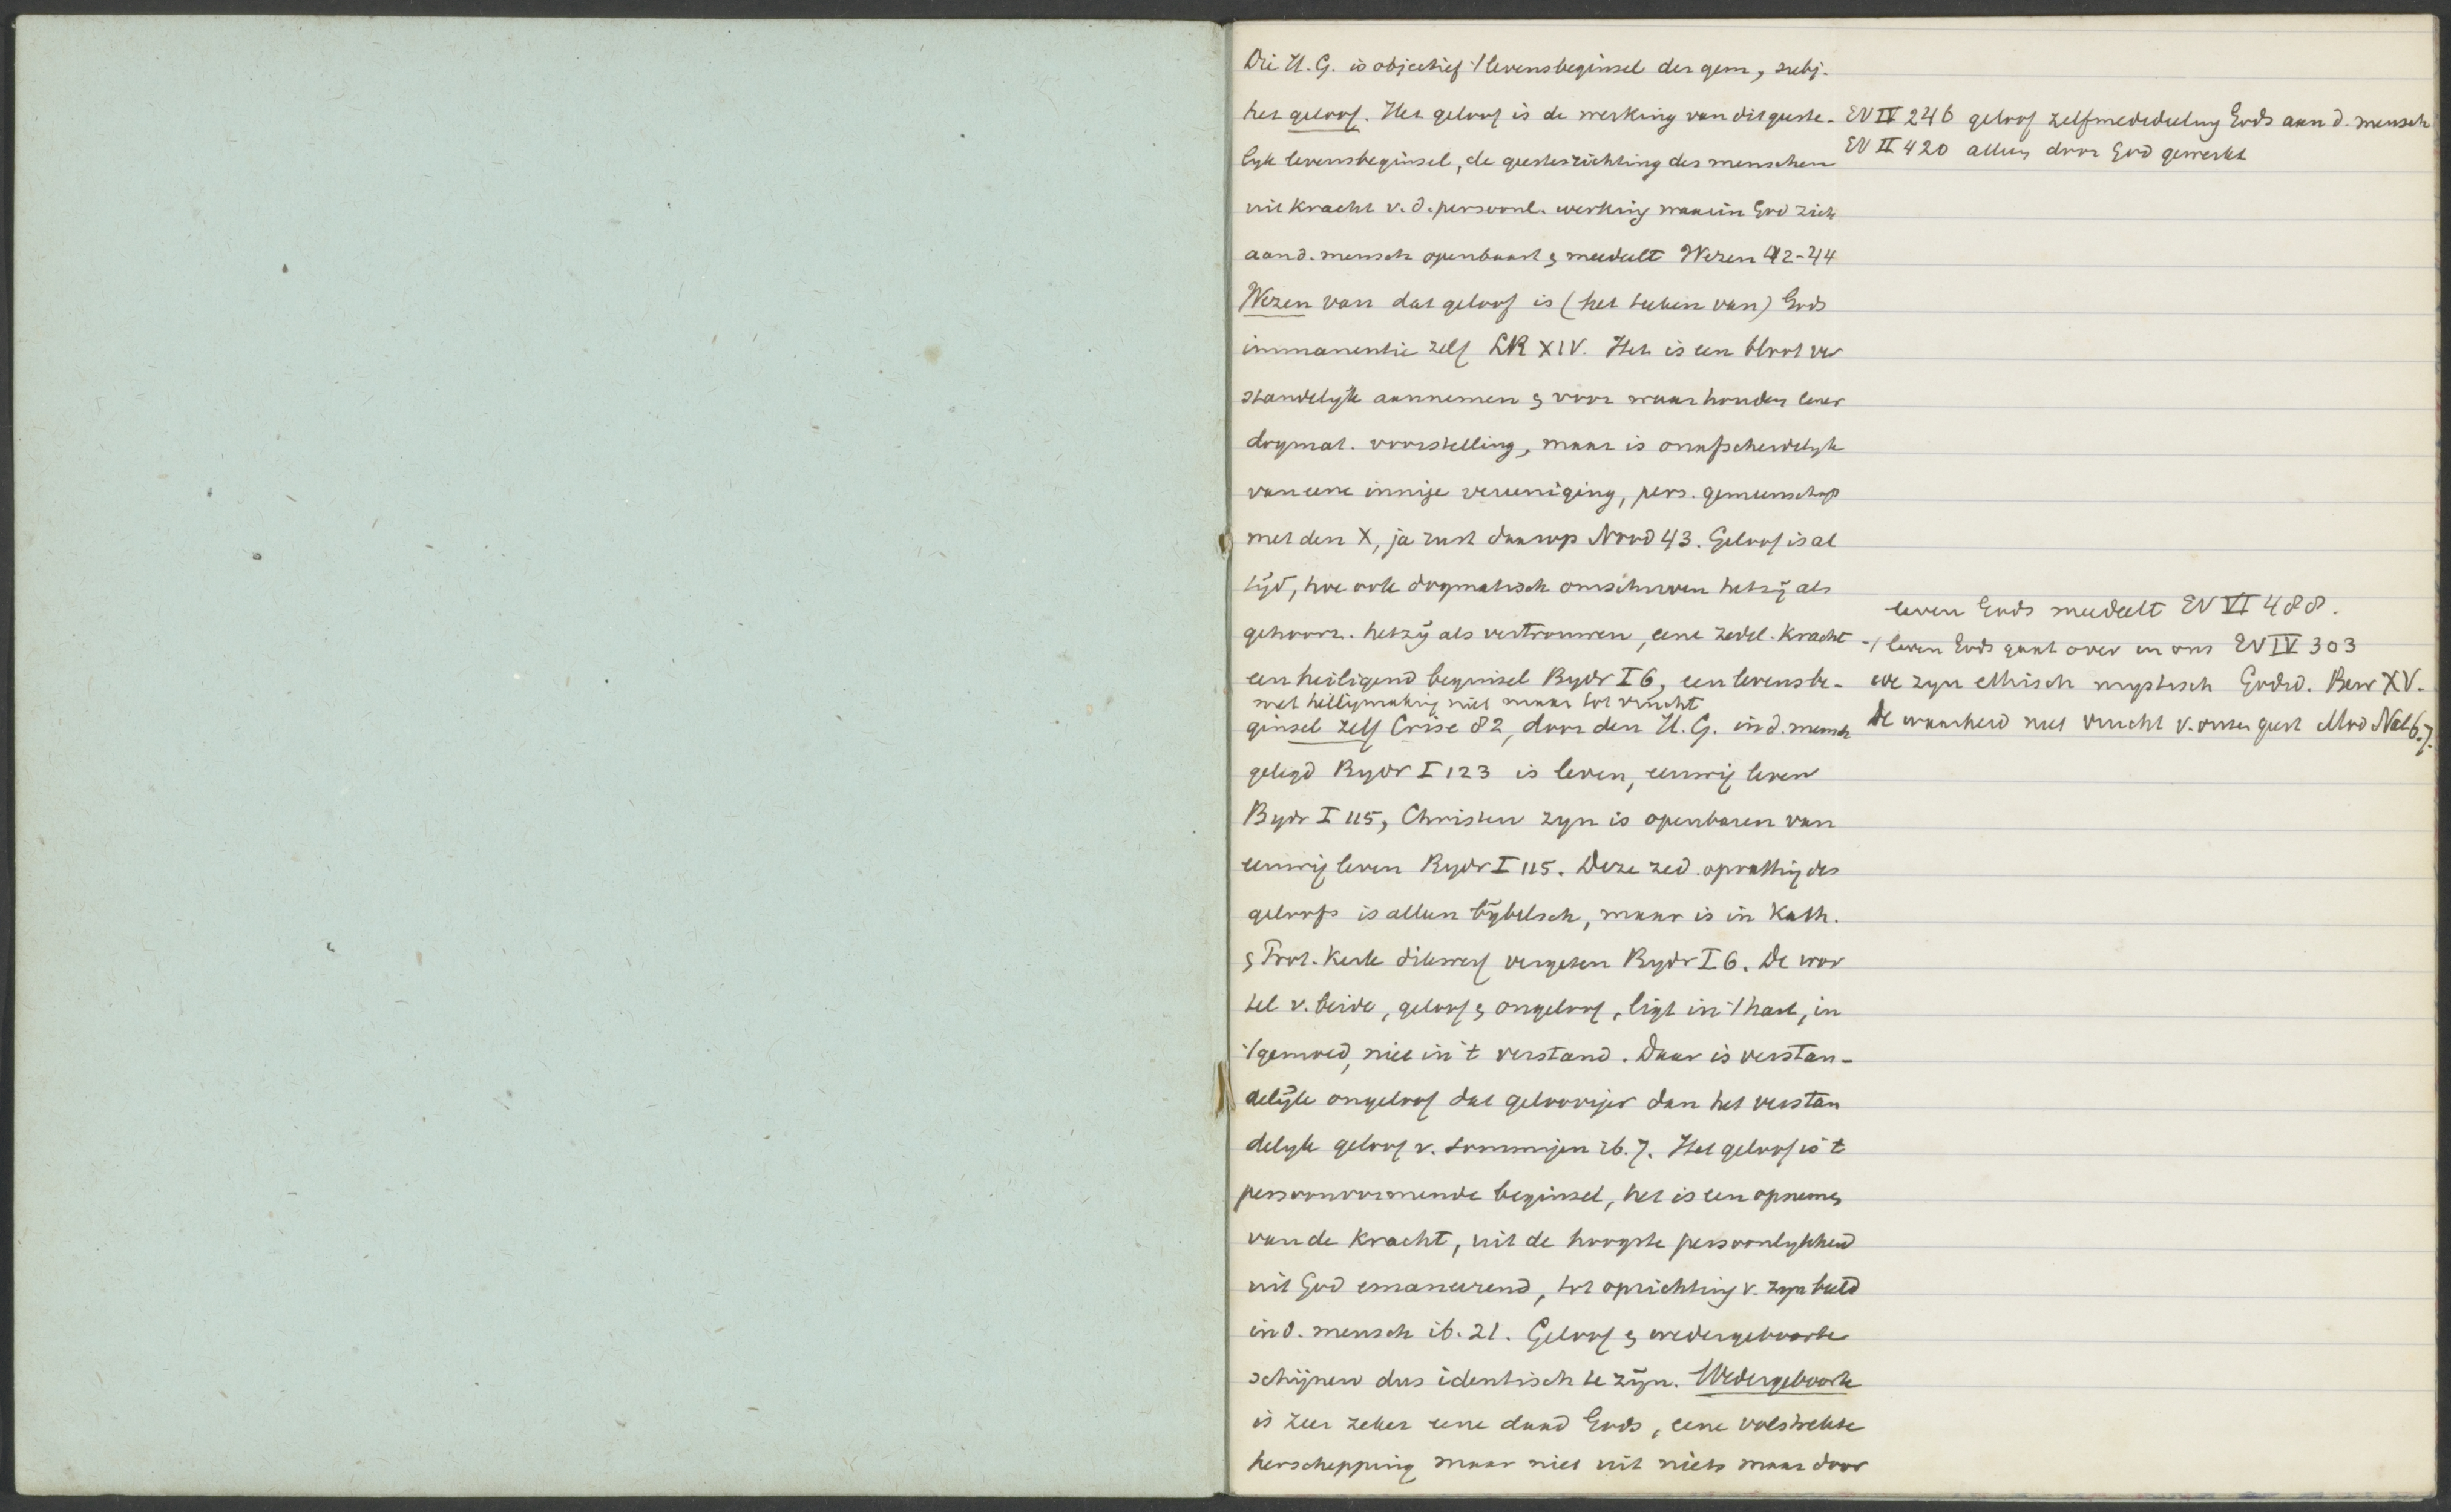 Die H.G. is objectief 't levensbeginsel der gem, subj.
het geloof. Het geloof is de werking van dit geeste-
lyk levensbeginsel, de geestesrichting des menschen
uit kracht v.d. persoonl. werking waarin God zich
aan d. mensch openbaart & meedeelt Wezen 42-44
Wezen van dat geloof is (het teeken van) Gods
immanentie zelf LR XIV. Het is een bloot ver
standelyk aannemen & voor waar houden eener
dogmat. voorstelling, maar is onafscheidelyk
van eene innige vereeniging, pers. gemeenschap
met den X, ja rust daarop Nood 43. Geloof is al
tijd, hoe ook dogmatisch omschreven hetzij als
gehoorz. hetzij als vertrouwen, eene zedel. kracht
een heiligend beginsel Bydr I 6, een levensbe-
met heiligmaking niet maar tot vrucht
ginsel zelf Crise 82, door den H.G. in d. mensch
gelegd Bydr I 123 is leven, eeuwig leven
Bydr I 115, Christen zyn is openbaren van
eeuwig leven Bydr I 115. Deze zed. opvatting des
geloofs is alleen bijbelsch, maar is in Kath.
& Prot. Kerk dikwerf vergeten Bydr I 6. De wor
tel v. beide, geloof & ongeloof, ligt in 't hart, in
't gemoed, niet in 't verstand. Daar is verstan-
delijk ongeloof dat gelooviger dan het verstan
delyk geloof v. sommigen ib. 7. Het geloof is 't
persoonvormende beginsel, het is een opnemen
van de kracht, uit de hoogste persoonlykheid
uit God emaneerend, tot oprichting v. zyn beeld
in d. mensch ib. 21. Geloof & wedergeboorte
schijnen dus identisch te zijn. Wedergeboorte
is zeer zeker eene daad Gods, eene volstrekte
herschepping maar niet uit niets maar door
EV IV 246 geloof zelfmededeeling Gods aan d. mensch
EV II 420 alleen door God gewerkt
leven Gods meedeelt EV VI 488.
't leven Gods gaat over in ons EV IV 303
we zyn ethisch mystisch Godsd. Bew XV.
De waarheid niet vrucht v. onzen geest Mod Nat 6.7.